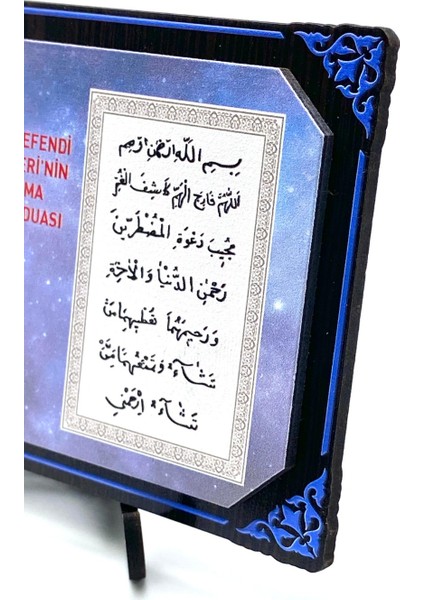 EFENDİ
ERİ'NİN
MA
DUASI
بسم الله الرحمن الرحيم
اَللّٰهُمَّ فَارِجَ الْهَمِّ كَاشِفَ الْغَمِّ
مُجِيبَ دَعْوَةِ الْمُضْطَرِّينَ
رَحْمٰنَ الدُّنْيَا وَالْاٰخِرَةِ
وَرَحِيمَهُمَا تُعْطِيهِمَا مَنْ
تَشَاءُ وَتَمْنَعُهُمَا مِمَّنْ
تَشَاءُ ارْحَمْنِي